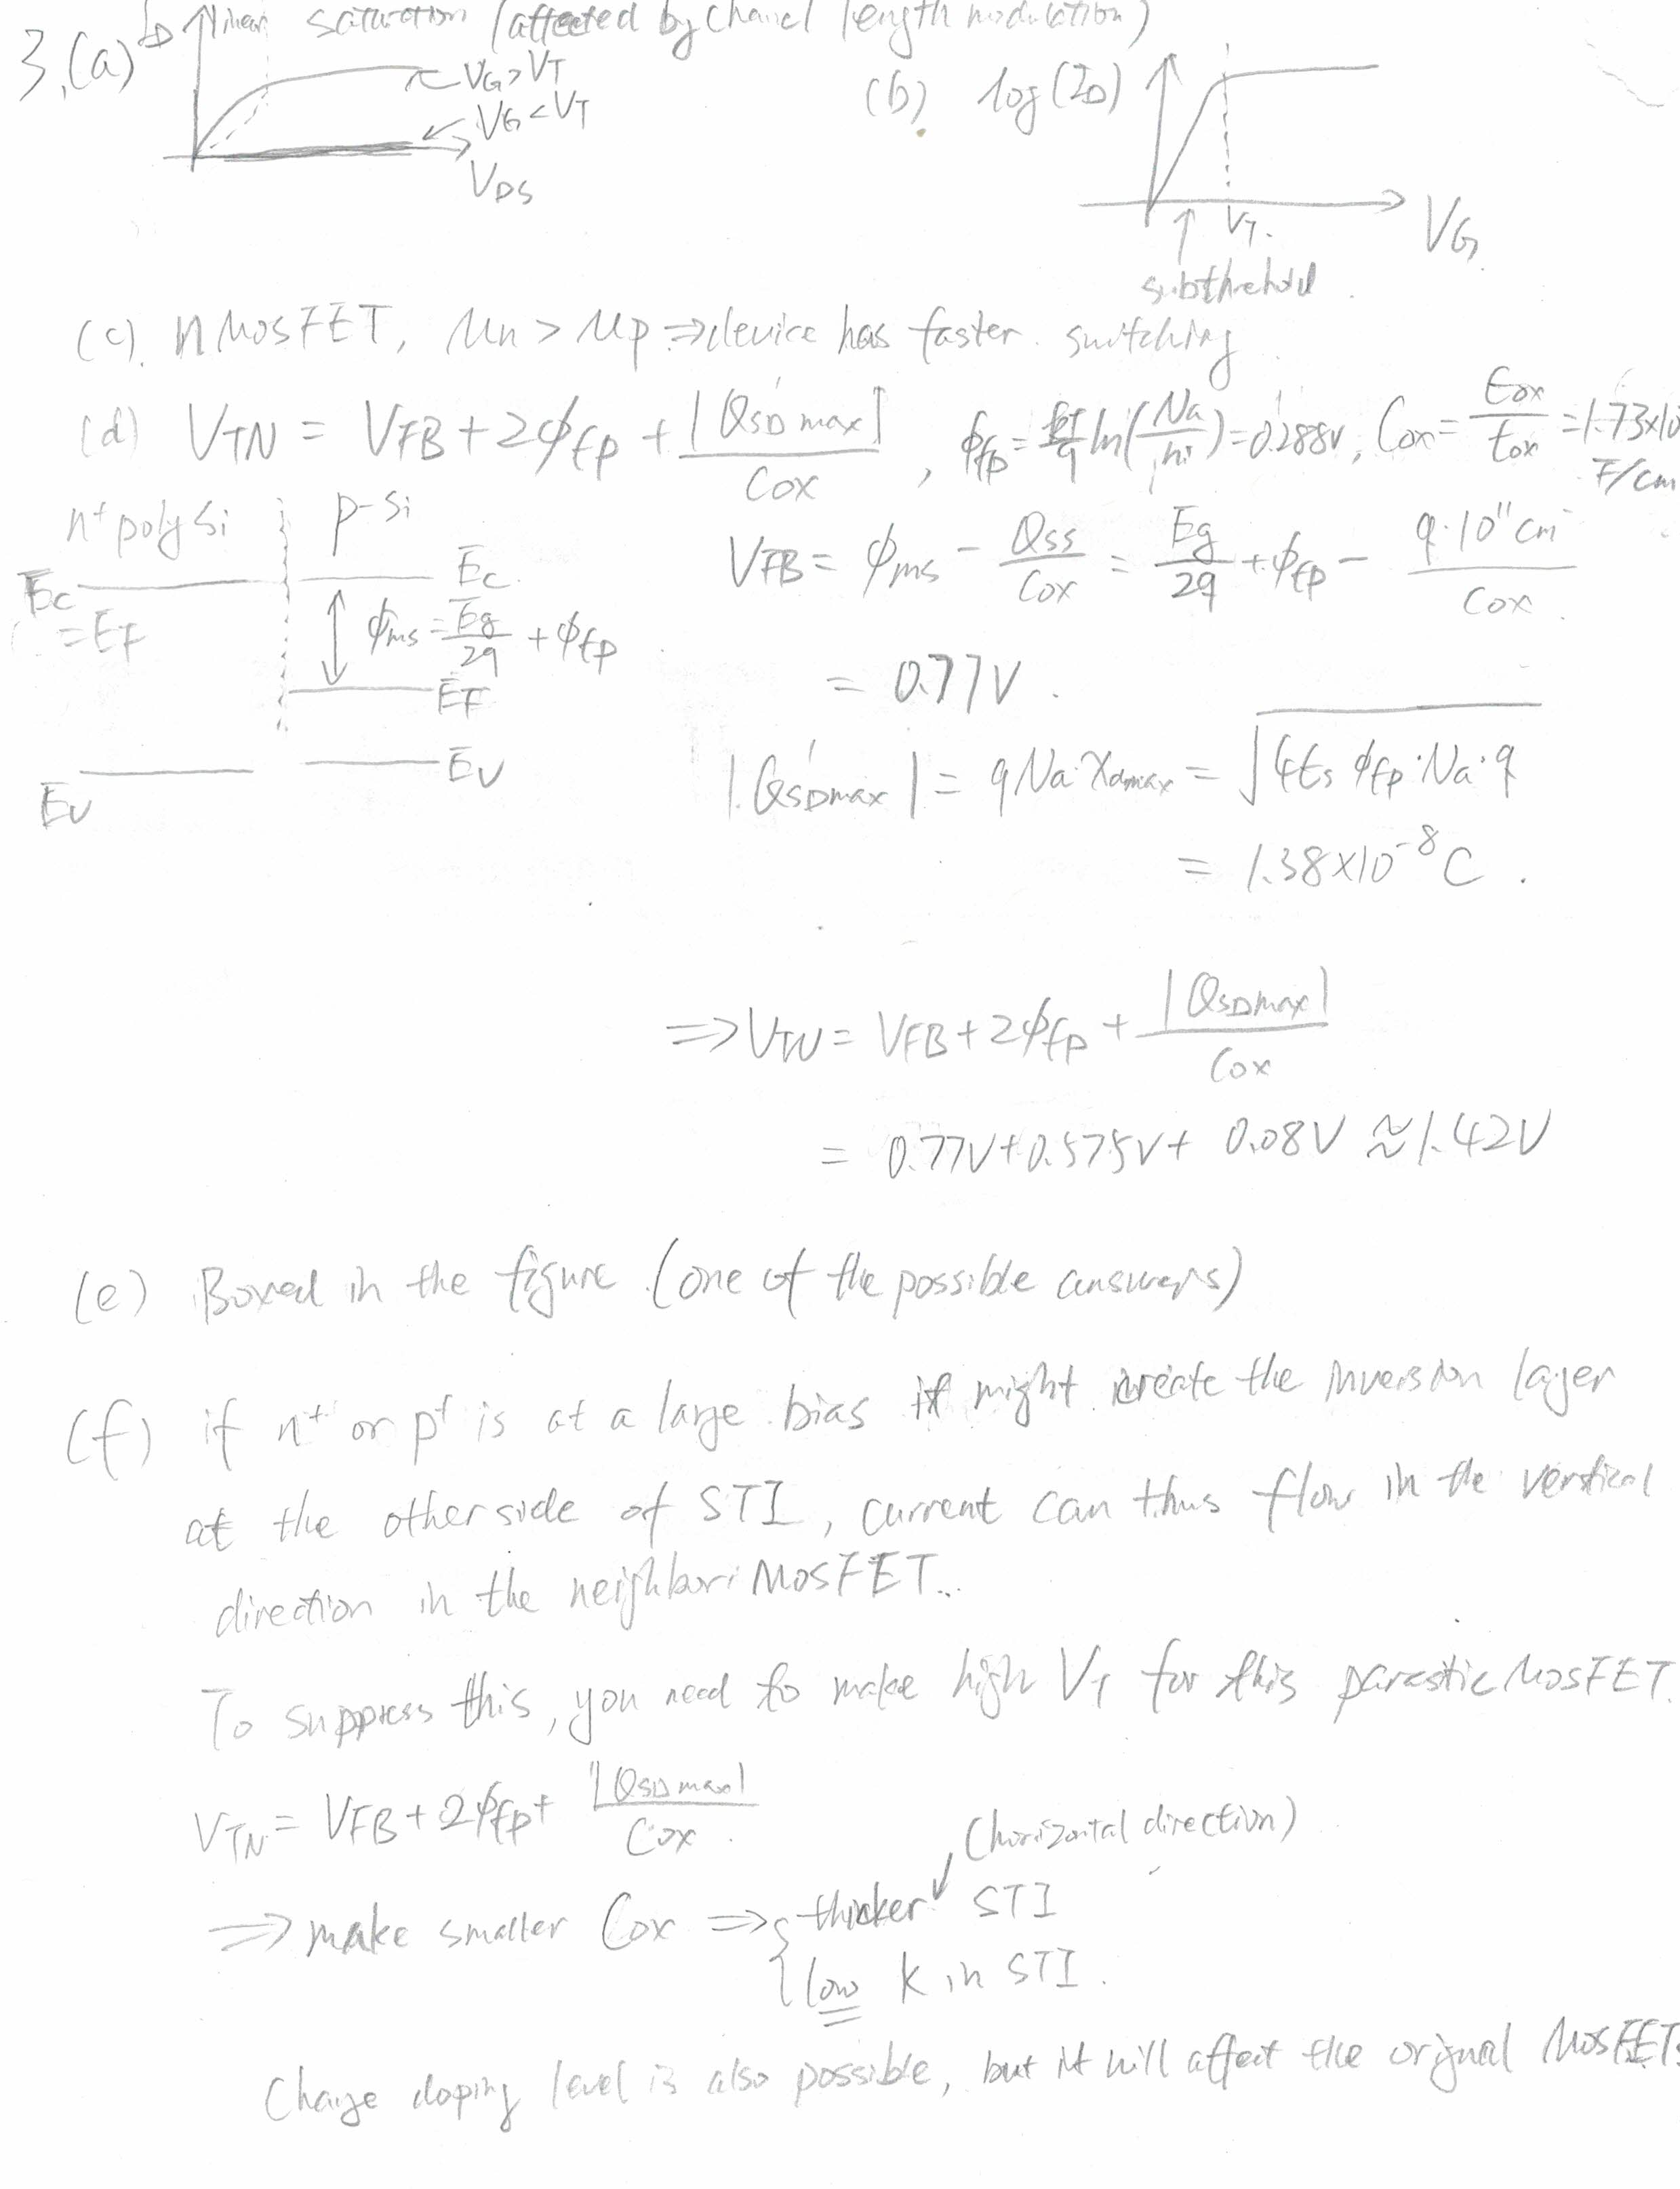 3.(a) I_D linear saturation (affected by channel length modulation)
V_G > V_T
V_G < V_T
V_DS
(b) log(I_D)
V_T
V_G
subthrehold
(c). nMOSFET, μn > μp ⇒ device has faster switching
(d) V_TN = V_FB + 2ϕ_fp + |Q'_SD max| / Cox , ϕ_fp = kT/q ln(Na/ni) = 0.288V, Cox = ϵox/tox = 1.73×10
F/cm
n+ poly Si p-Si
Ec Ec
= EF
ϕms = Eg/2q + ϕ_fp
EF
Ev Ev
V_FB = ϕms − Qss/Cox = Eg/2q + ϕ_fp − q·10^11 cm / Cox
= 0.77V.
|Q'_SDmax| = qNa·Xdmax = √(4ϵs ϕ_fp·Na·q)
= 1.38×10^-8 C.
⇒ V_TN = V_FB + 2ϕ_fp + |Q_SDmax| / Cox
= 0.77V + 0.575V + 0.08V ≈ 1.42V
(e) Boxed in the figure (one of the possible answers)
(f) if n+ or p+ is at a large bias it might create the inversion layer
at the other side of STI, current can thus flow in the vertical
direction in the neighbori MOSFET..
To suppress this, you need to make high V_T for this parastic MOSFET.
V_TN = V_FB + 2ϕ_fp + |Q_SD max| / Cox.
(horizontal direction)
⇒ make smaller Cox ⇒ { thicker STI
low K in STI.
Change doping level is also possible, but it will affect the original MOSFETs